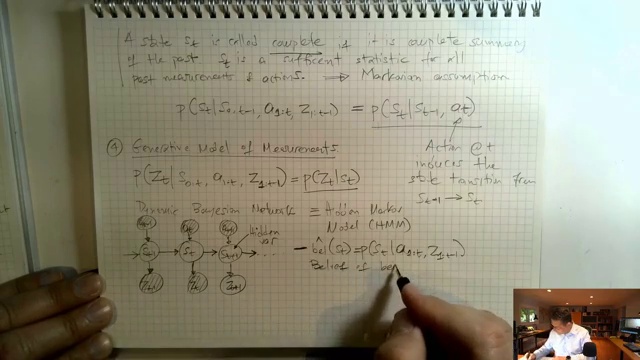 A state St is called complete if it is complete summary
of the past St is a sufficient statistic for all
past measurements & actions. ⟹ Markovian assumption
p(St|S0:t-1, a1:t, Z1:t-1) = p(St|St-1, at)
Action @ t
induces the
state transition from
St-1 → St
④ Generative Model of Measurements
p(Zt|S0:t, a1:t, Z1:t-1) = p(Zt|St)
Dynamic Bayesian Networks ≡ Hidden Markov
Model (HMM)
Hidden
var
St-1 St St+1 ...
Zt-1 Zt Zt+1
– bel(St) = p(St|a1:t, Z1:t-1)
Belief is be